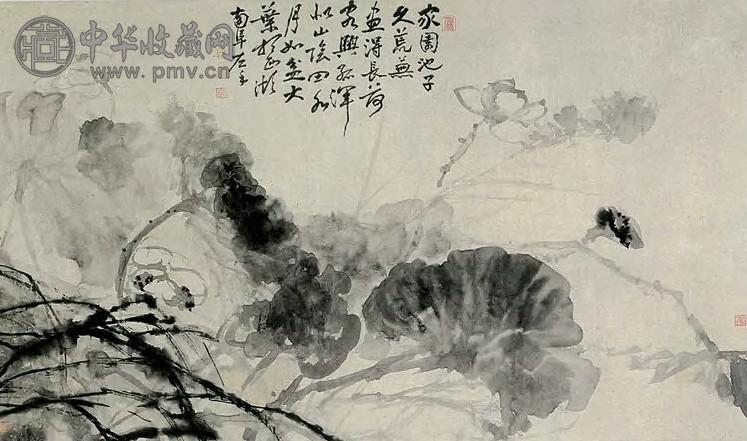 中华收藏网
www.pmv.cn
家園池子
久荒蕪
畫得長荷
寄興孤渾
似山陰四五
月如盆大
葉 湖
南阜左手